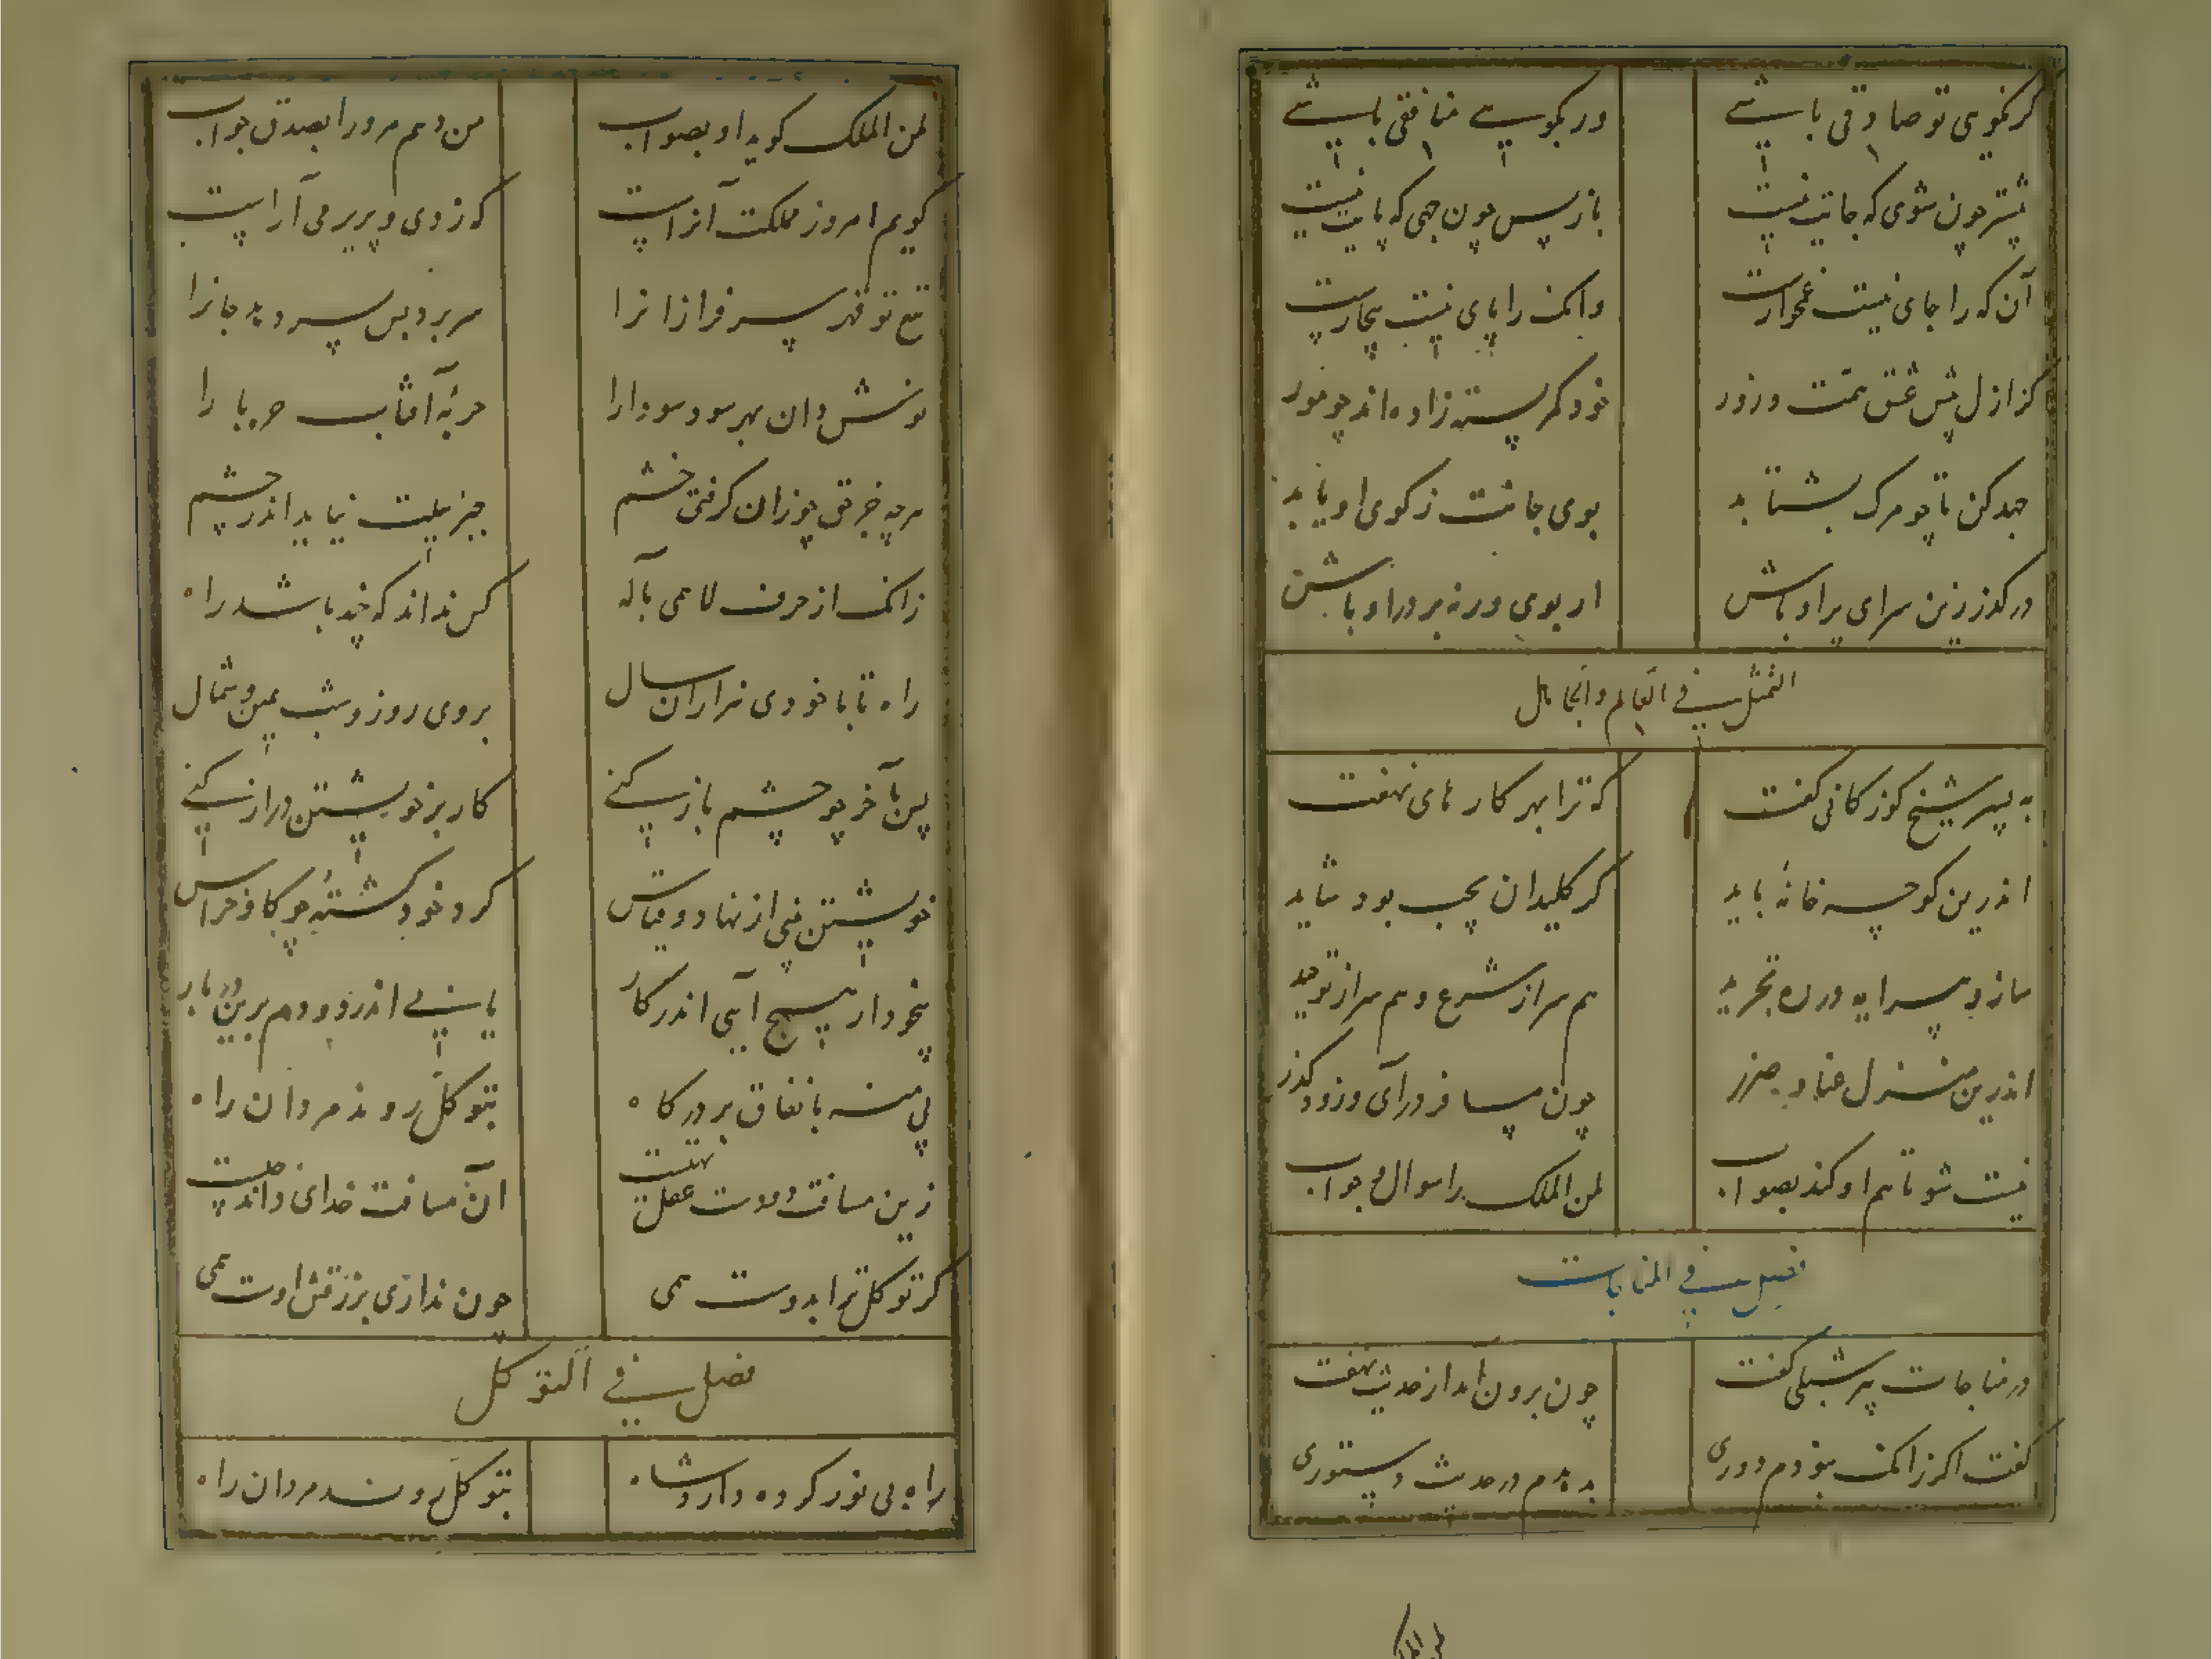 گر نگوی تو صادقی باشے ور بگوسے منافقی باشے
پیشتر چون شوی که جات نیست باز پس چون جهی که پایت نیست
آن که را جای نیست غمخوارست وانک را پای نیست بیچارست
کز ازل پیش عشق همت وزور خود کمر بسته زاده اند چو مور
جهد کن تا چو مرک بشتابد بوی جانت ز کوی او یابد
در کذر زین سرای پر اوباش ار بوی ورنه بر در او باش
التمثل فے العالم والجاهل
به پسر شیخ کورکانی کفت که ترا بهر کار های نهفت
اندرین کوچه خانهٔ باید کر کلیدان بچپ بود شاید
ساز و پیرایه در ره تجرید هم سر از شرع و هم سر از توحید
اندرین منزل عنا و ضرر چون مسافر درآی و زود کذر
نیست شو تا هم او کند بصواب لمن الملک را سوال و جواب
فصل فے المناجات
در مناجات پیر شبلی کفت چون برون امد از حدیث نهفت
کفت اکر زانک نبودم دوری بدهدم در حدیث دستوری
لمن الملک
لمن الملک کوید او بصواب من دهم مرورا بصدق جواب
کویم امروز مملکت آنراست که ز دی و پریر می آراست
تیغ تو قهر سرفرازانرا سر برد پس سر دهد جانرا
نوش دان بهر سود سودا را حربهٔ آفتاب حربا را
هرچه جز حق چو زان کرفتی خشم جبرئیلت نیاید اندر چشم
زانک از حرف لا همی بآله کس نداند که چند باشد راه
راه تا با خودی هزاران سال بروی روز و شب یمین و شمال
پس بآخر چو چشم باز کنے کار بر خویشتن دراز کنے
خویشتن بینی از نهاد و قیاس کرد خود کشتهٔ چو کاو خراس
بیخود ار هیچ آیی اندر کار یابے اندر دو دم برین در بار
پی منه با نفاق بر درکاه بتوکل روند مردان راه
زین مسافت دو دست عقل تهیست آن مسافت خدای داند چیست
کر توکل ترا بدوست همی چون نداری برزقش اوست همی
فصل فے التوکل
راه بی نور کرده دار و شاه بتوکل روند مردان راه